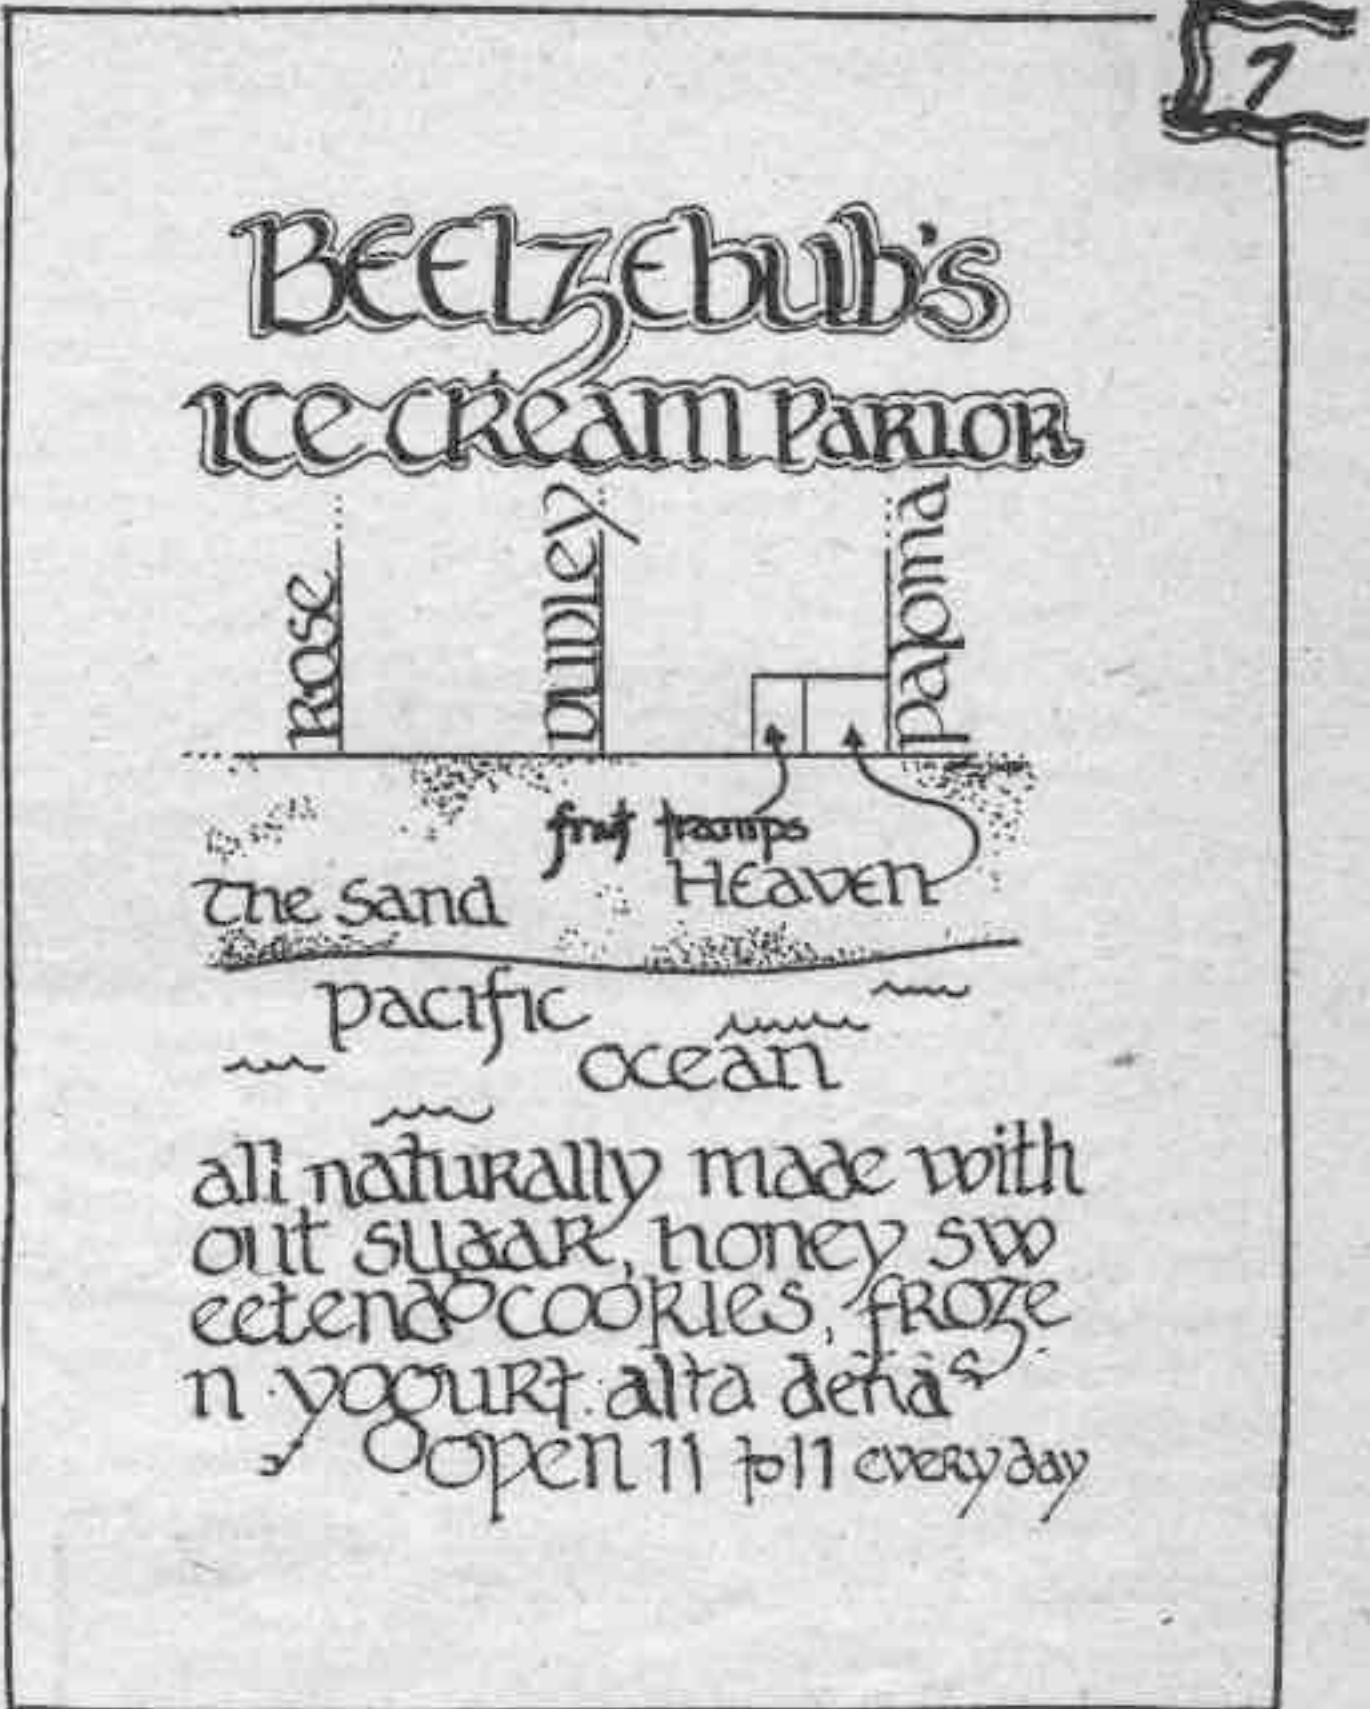 7
BEElzEbub's
ICE CREAM PARLOR
ROSE
DUDLEY
Paloma
fruit tramps
HEAVEN
The Sand
pacific
ocean
all naturally made with
out sugar, honey sw
eetend cookies, froze
n yogurt. alta dena's
open 11 to 11 every day